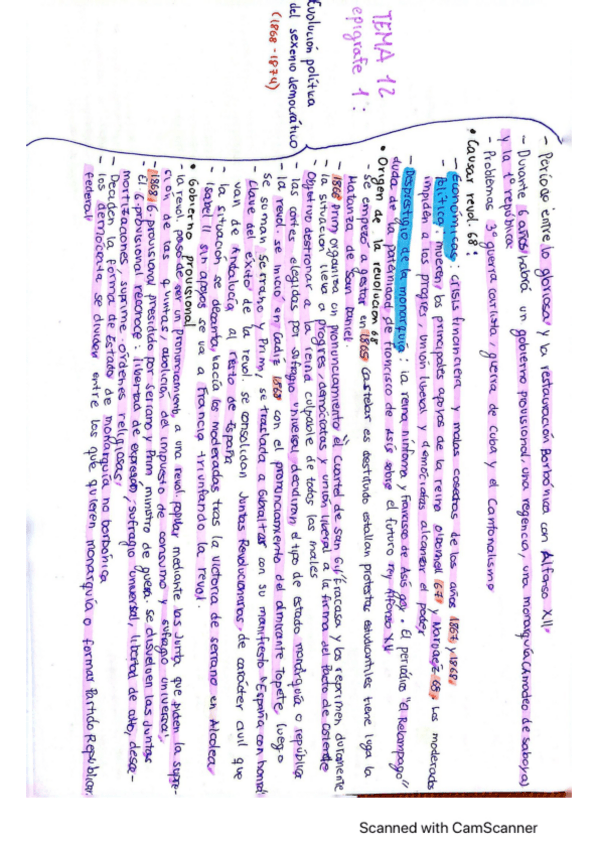 TEMA 12
epígrafe 1:
Evolución política
del sexenio democrático
(1868-1874)
- Período entre la gloriosa y la restauración Borbónica con Alfonso XII.
- Durante 6 años habrá un gobierno provisional, una regencia, una monarquía (Amadeo de Saboya)
y la 1º república
- Problemas 3º guerra carlista, guerra de Cuba y el Cantonalismo
• Causar revol. 68:
- Económicas: crisis financiera y malas cosechas de los años 1867 y 1868.
- Política: mueren los principales apoyos de la reina O'Donnell (67) y Narváez 68, los moderados
impiden a los progres, unión liberal y demócratas alcanzar el poder
- Desprestigio de la monarquía: la reina ninfoma y Francisco de Asís gay. El periódico "el Relámpago"
duda de la paternidad de Francisco de Asís sobre el futuro rey Alfonso XII
• Origen de la revolucion 68
- Se empezó a gestar en 1865 Castelar es destituido estallan protestas estudiantiles tiene lugar la
Matanza de San Daniel.
- 1866 Prim organiza un pronunciamiento (Cuartel de San Gil) fracasa y los reprimen duramente
- la situación lleva a progres, demócratas y unión liberal a la firma del Pacto de Ostende
Objetivo destronar a la reina culpable de todos los males
- las cortes elegidas por sufragio universal decidirían el tipo de estado monarquía o república
- la revol. se inició en Cádiz 1868 con el pronunciamiento del almirante Topete luego
se suman Serrano y Prim, se traslada a Gibraltar con su manifiesto "España con honra"
- Clave del éxito de la revol. se consolidan Juntas Revolucionarias de carácter civil que
van de Andalucía al resto de España
- la situación se decanta hacía los moderados tras la victoria de Serrano en Alcolea
Isabel II sin apoyos se va a Francia triunfando la revol.
• Gobierno provisional
- la revol. pasó de ser un pronunciamiento a una revol. popular mediante las Junta que piden la supre-
sión de las quintas, abolición del impuesto de consumo y sufragio universal.
- 1868: G. provisional presidido por Serrano y Prim ministro de guerra. se disuelven las Juntas
- El G. provisional reconoce: libertad de expresión, sufragio universal, libertad de culto, desa-
mortizaciones, suprime órdenes religiosas.
- Deciden la forma de Estado de monarquía no borbónica
- los demócrata se dividen entre los que quieren monarquía o formas Partido Republicano
federal
Scanned with CamScanner